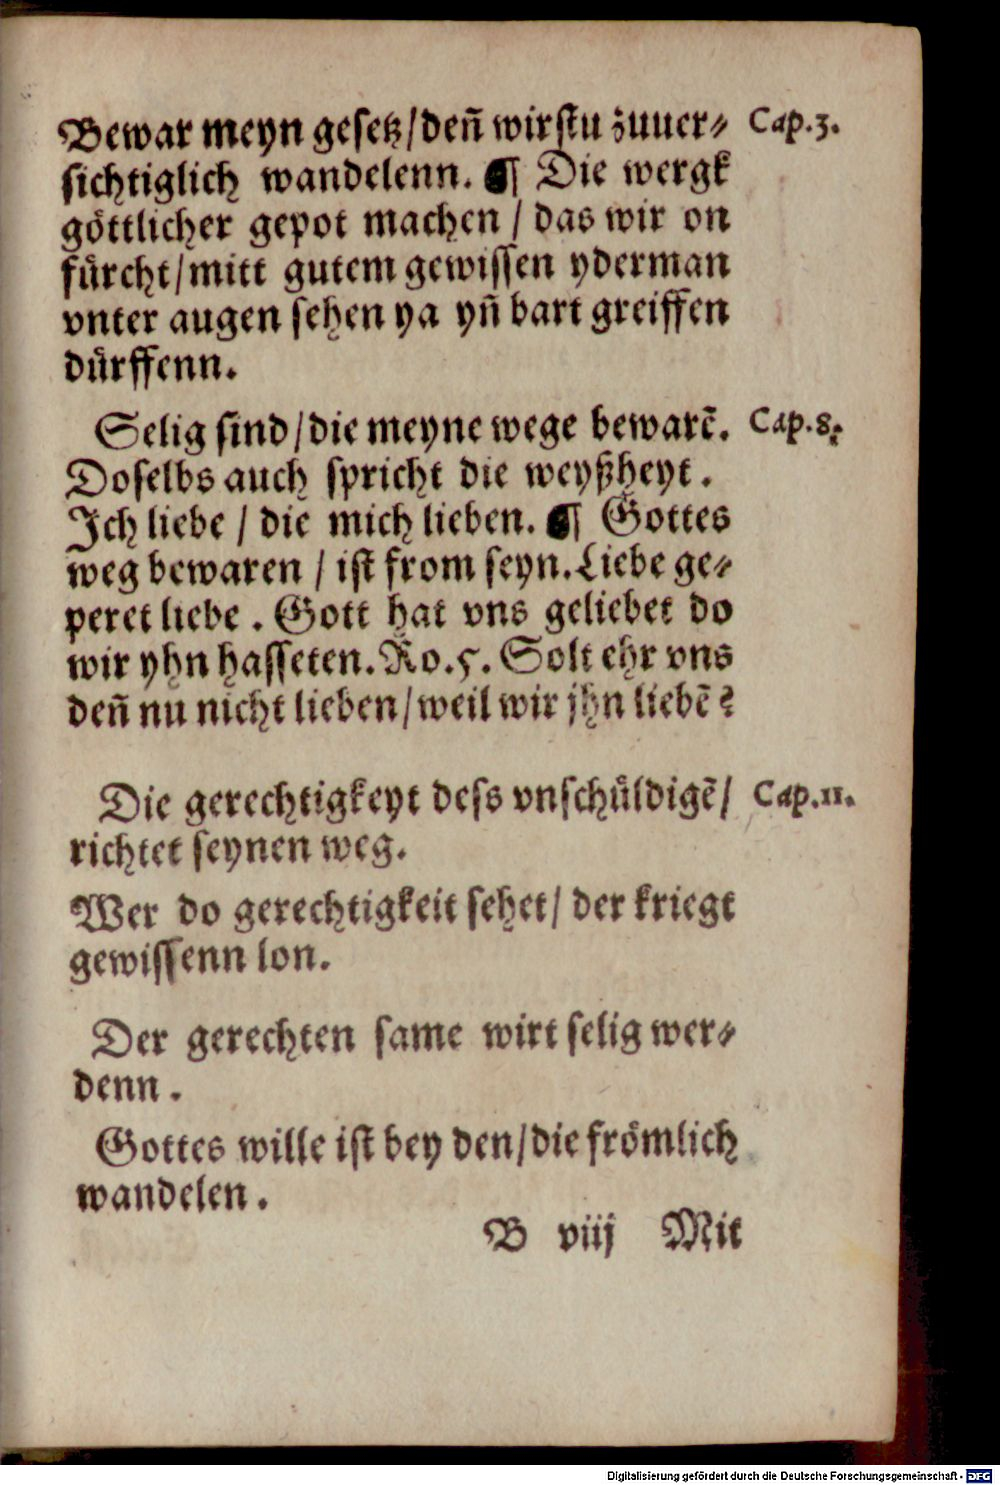 Bewar meyn gesetz/ deñ wirstu zuuer⸗ Cap.3.
sichtiglich wandelenn. ¶ Die wergk
göttlicher gepot machen / das wir on
fürcht/ mitt gutem gewissen yderman
vnter augen sehen ya yñ bart greiffen
dürffenn.
Selig sind/ die meyne wege bewarē. Cap.8.
Doselbs auch spricht die weyßheyt.
Ich liebe / die mich lieben. ¶ Gottes
weg bewaren / ist from seyn. Liebe ge⸗
peret liebe. Gott hat vns geliebet do
wir yhn hasseten. Ro.5. Solt ehr vns
deñ nu nicht lieben/ weil wir jhn liebē?
Die gerechtigkeyt dess vnschüldigē/ Cap.11.
richtet seynen weg.
Wer do gerechtigkeit sehet/ der kriegt
gewissenn lon.
Der gerechten same wirt selig wer⸗
denn.
Gottes wille ist bey den/ die frömlich
wandelen.
B viij Mit
Digitalisierung gefördert durch die Deutsche Forschungsgemeinschaft - DFG